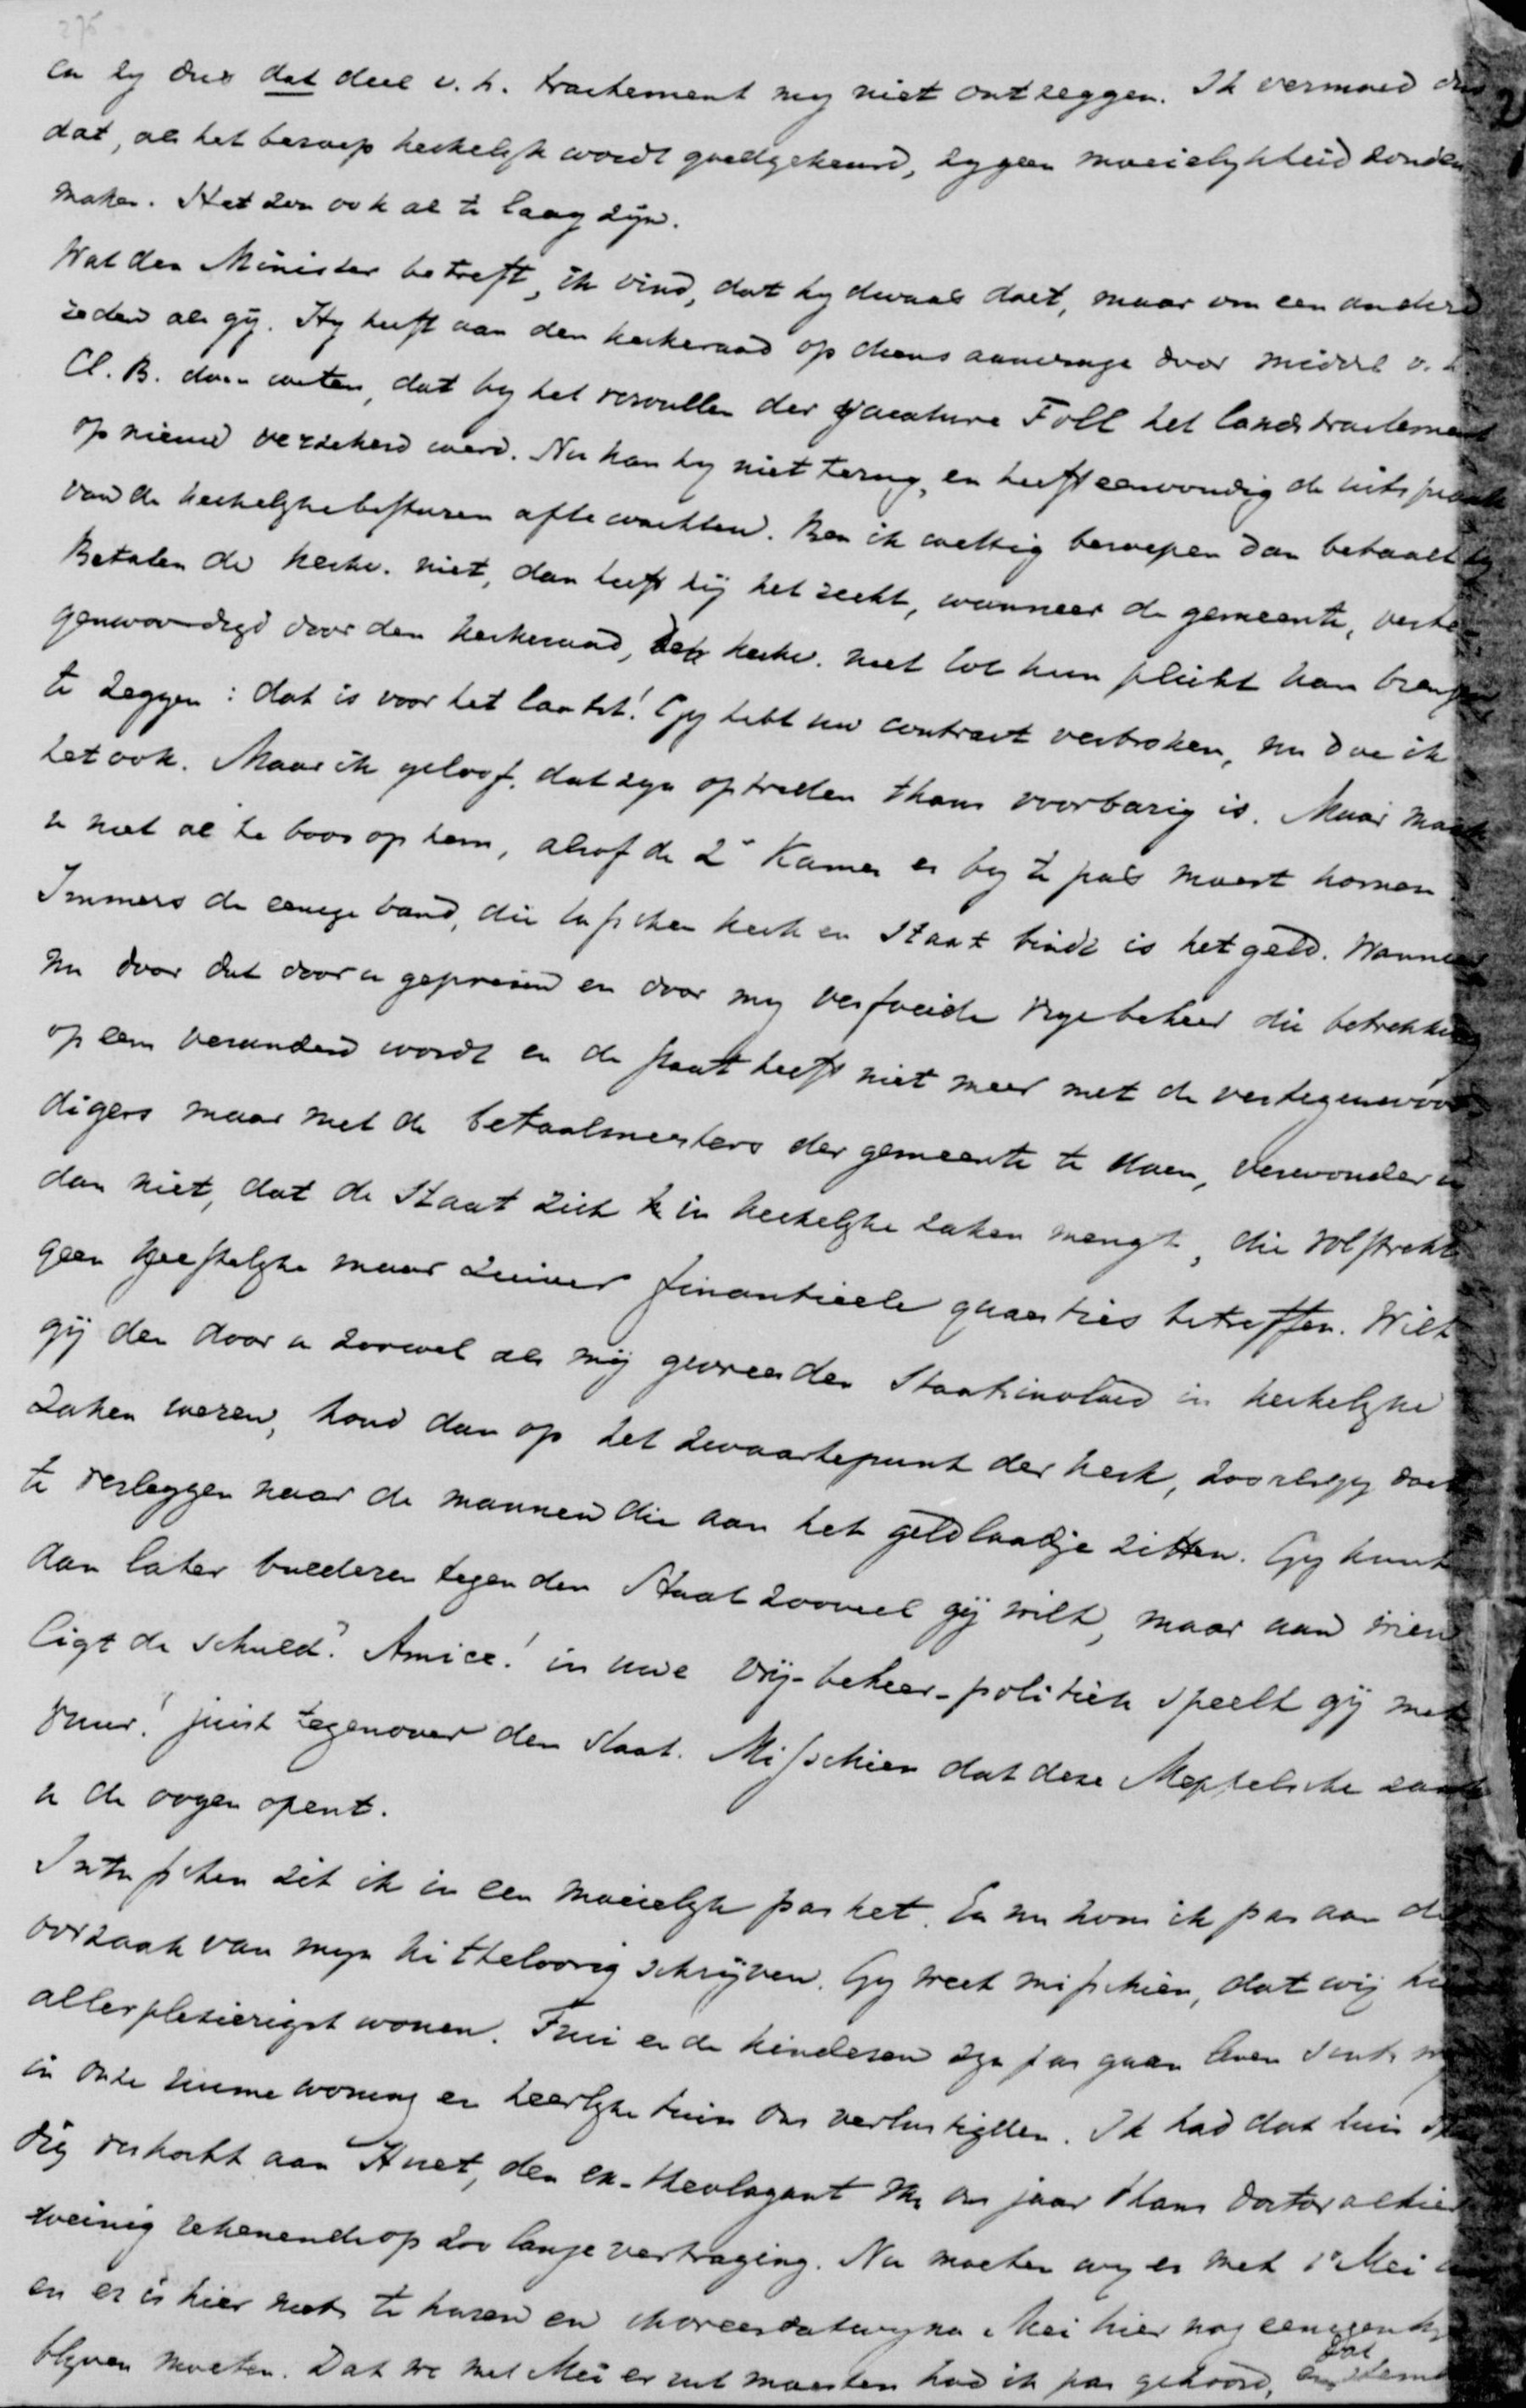 275
en zy dus dat deel v. h. tractement my niet ontzeggen. Ik vermoed dus
dat, als het beroep kerkelyk wordt goedgekeurd, zy geen moeielykheid zouden
maken. Het zou ook al te laag zijn.
Wat den Minister betreft, ik vind, dat hy dwaas doet, maar om een andere
reden als gij. Hy heeft aan den kerkeraad op diens aanvrage door middel v. h.
Cl. B. doen weten, dat by het vervullen der vacature Foll het landstractement
op nieuw verzekerd werd. Nu kan hy niet terug, en heeft eenvoudig de uitspraak
van de kerkelyke besturen afte wachten. Ben ik wettig beroepen dan betaalt hy.
Betalen de kerkv. niet, dan heeft hij het recht, wanneer de gemeente, verte-
genwoordigd door den kerkeraad, de kerkv. niet tot hun plicht kan brengen
te zeggen: dat is voor het laatst! Gy hebt uw contract verbroken, nu doe ik
het ook. Maar ik geloof, dat zyn optreden thans voorbarig is. Maar maak
u niet al te boos op hem, alsof de 2e Kamer er by te pas moest komen.
Immers de eenige band, die tusschen kerk en Staat bindt is het geld. Wanneer
nu door dat door u geprezen en door my verfoeide vrye beheer die betrekking
op eens veranderd wordt en de staat heeft niet meer met de vertegenwoor-
digers maar met de betaalmeesters der gemeente te doen, verwonder u
dan niet, dat de Staat zich in kerkelyke zaken mengt, die volstrekt
geen geestelyke maar zuiver financieele quaesties betreffen. Wilt
gij den door u zoowel als mij gevreesden Staatsinvloed in kerkelyke
zaken weren, houd dan op het zwaartepunt der kerk, zooals gy doet
te verleggen naar de mannen die aan het geldlaadje zitten. Gy kunt
dan later bulderen tegen den Staat zooveel gij wilt, maar aan wien
ligt de schuld? Amice! in uwe vrij-beheer-politiek speelt gij met
vuur! juist tegenover den Staat. Misschien dat deze Meppelsche zaak
u de oogen opent.
Intusschen zit ik in een moeielyk parket. En nu kom ik pas aan de
oorzaak van myn kitteloorig schrijven. Gy weet misschien, dat wij hier
allerplezierigst wonen. en de kinderen zyn pas gaan leven sints wy
in onze ruime woning en heerlyke tuin ons verlustigden. Ik had dat huis
verkocht aan Huet, den ex-theologant jaar thans doctor alhier
weinig rekenende op zoo lange vertraging. Nu moeten wy er met 1e Mei
en er is hier niets te huren en wy na Mei hier nog eenigen
blyven moeten. Dat we met Mei er uit moesten had ik pas gehoord, dat